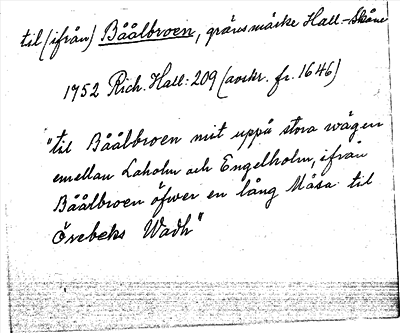 til (ifrån) Båålbroen, gränsmärke Hall.-Skåne
1752 Rich. Hall: 209 (avskr. fr. 1646)
"til Båålbroen mit uppå stora wägen
emellan Laholm och Engelholm, ifrån
Båålbroen öfwer en lång Måsa til
Örebeks Wadh"